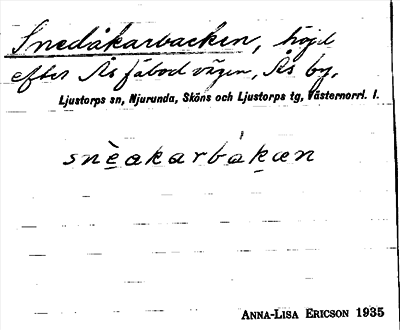 Snedåkarbacken, höjd
efter Ås fäbod vägen, Ås by.
Ljustorps sn, Njurunda, Sköns och Ljustorps tg, Västernorrl. l.
snèakarbákæn
ANNA-LISA ERICSON 1935